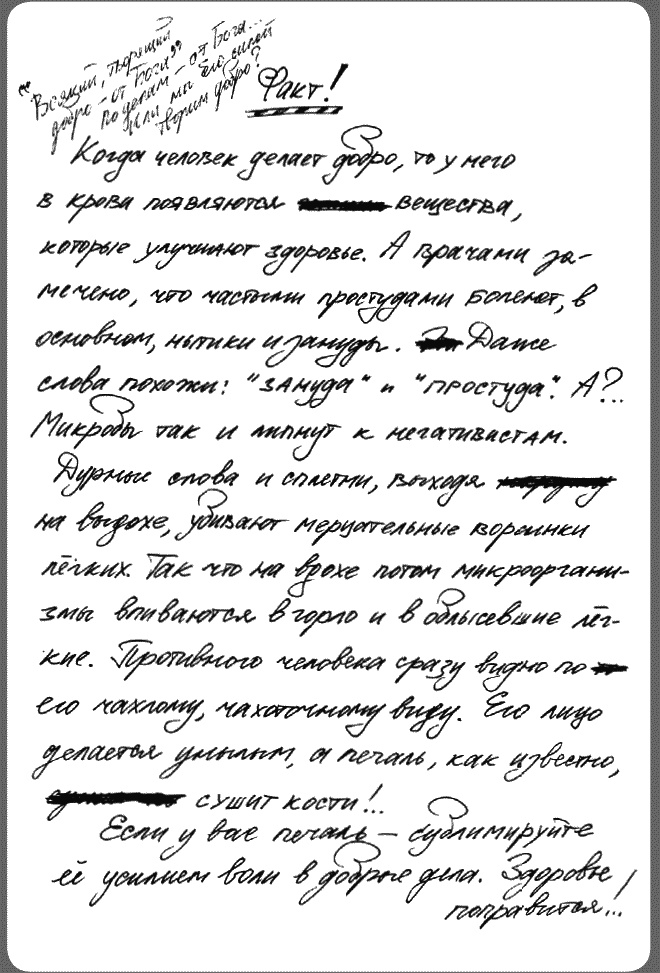 "Всякий, творящий
добро – от Бога"
По делам – от Бога...
Или мы его силой
творим добро?
Факт!
Когда человек делает добро, то у него
в крова появляются вещества,
которые улучшают здоровье. А врачами за-
мечено, что частыми простудами болеют, в
основном, нытики и зануды. Даже
слова похожи: "зануда" и "простуда". А?..
Микробы так и липнут к негативистам.
Дурные слова и сплетни, выходя
на выдохе, убивают мерцательные ворсинки
лёгких. Так что на вдохе потом микрооргани-
змы впиваются в горло и в облысевшие лёг-
кие. Противного человека сразу видно по
его чахлому, чахоточному виду. Его лицо
делается унылым, а печаль, как известно,
сушит кости!..
Если у вас печаль – сублимируйте
её усилием воли в добрые дела. Здоровье
поправится...!